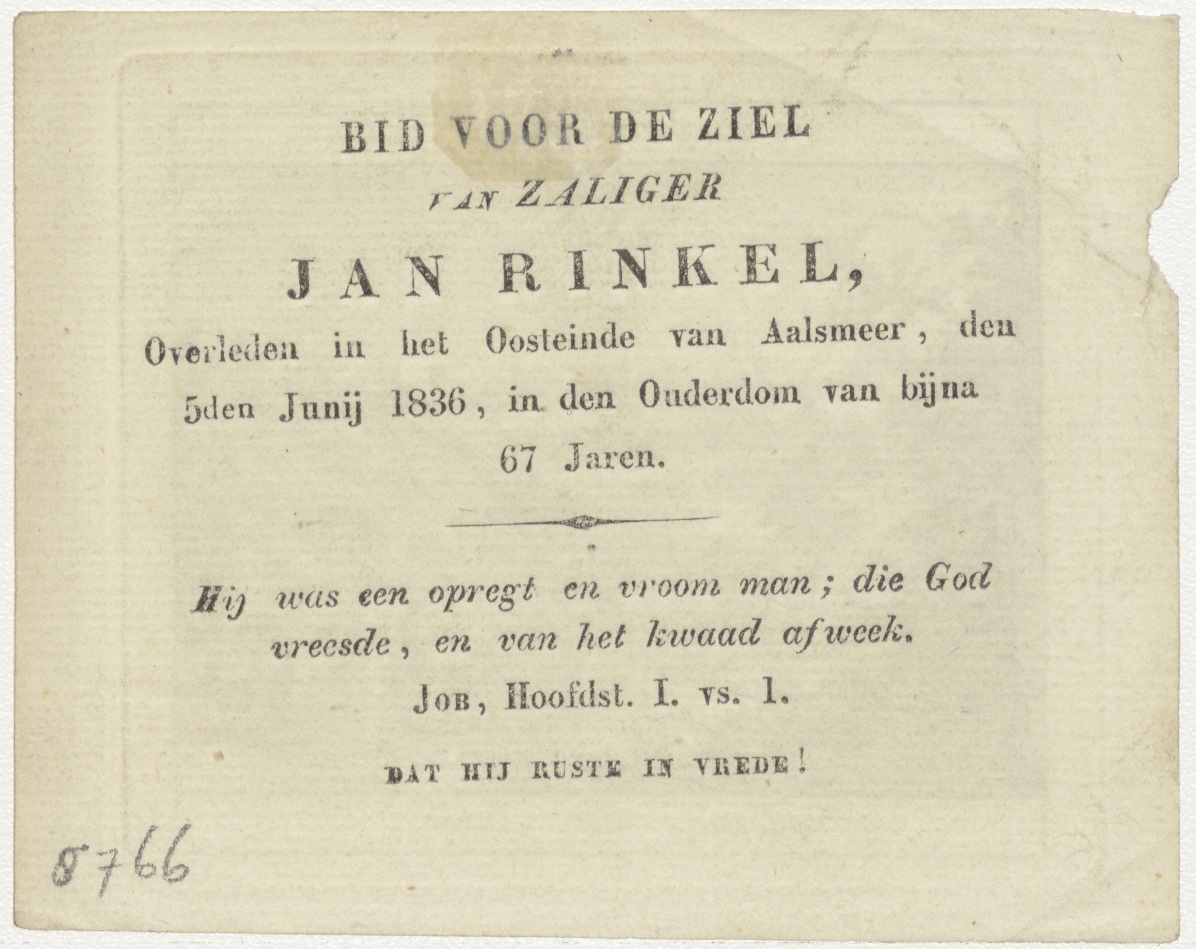 BID VOOR DE ZIEL
VAN ZALIGER
JAN RINKEL,
Overleden in het Oosteinde van Aalsmeer, den
5den Junij 1836, in den Ouderdom van bijna
67 Jaren.
Hij was een opregt en vroom man; die God
vreesde, en van het kwaad afweek.
JOB, Hoofdst. I. vs. 1.
DAT HIJ RUSTE IN VREDE!
8766